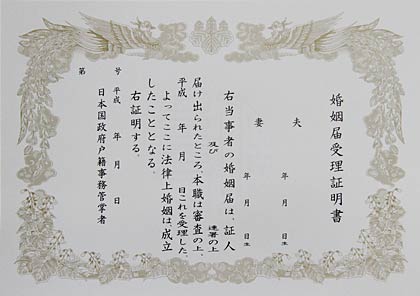 婚姻届受理証明書
夫　　年　月　日生
妻　　年　月　日生
右当事者の婚姻届は、証人
及び
連署の上
届け出られたところ、本職は審査の上、
平成　年　月　日これを受理した。
よってここに法律上婚姻は、成立
したこととなる。
右証明する。
第　　号
平成　年　月　日
日本国政府戸籍事務管掌者